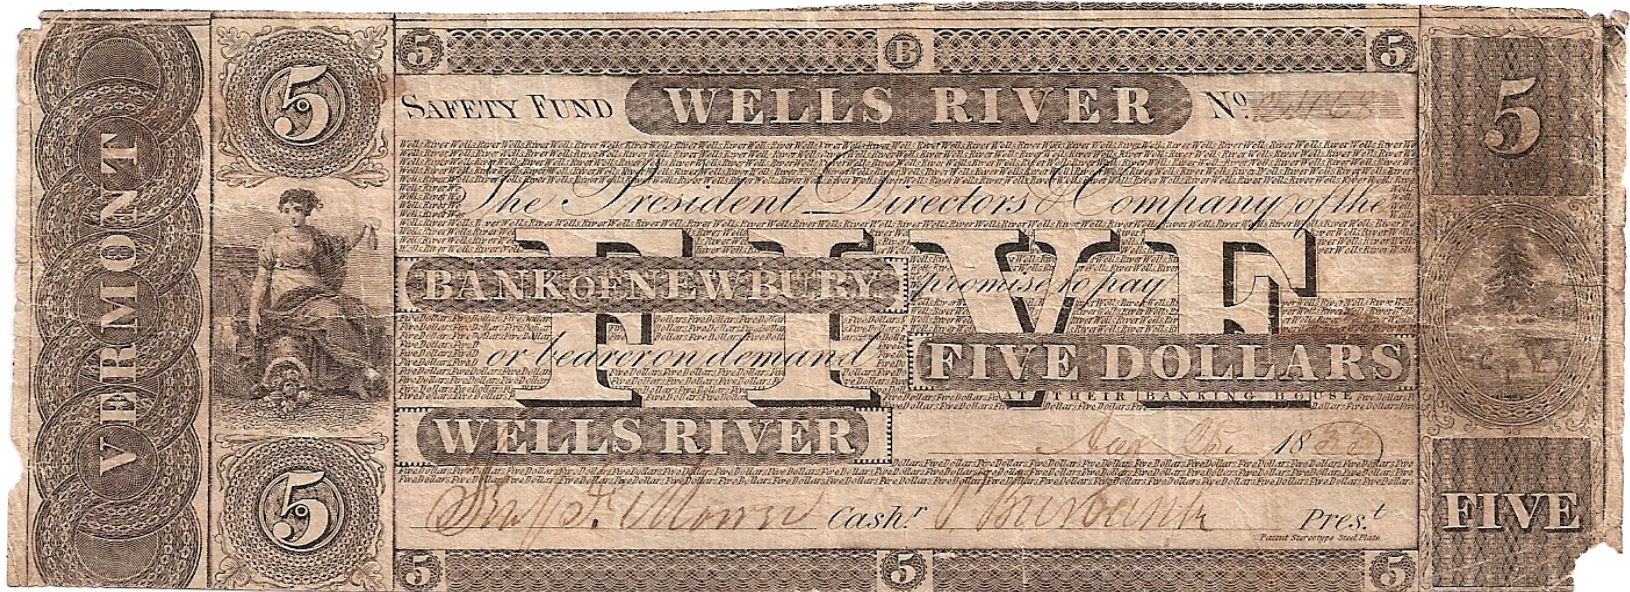 VERMONT
5
5
5 B 5
SAFETY FUND WELLS RIVER No.
The President Directors & Company of the
FIVE
BANK OF NEWBURY promise to pay
or bearer on demand FIVE DOLLARS
AT THEIR BANKING HOUSE
WELLS RIVER 18
Cash.r P Burbank Pres.t
Patent Stereotype Steel Plate.
5 5 5
5
FIVE